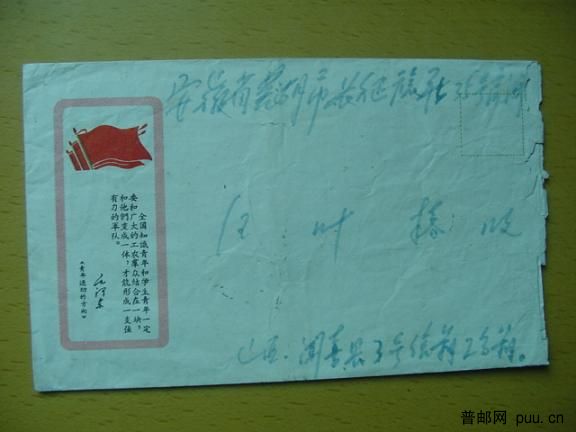 安徽省芜湖市长征旅社35号
收
全国知識青年和学生青年一定
要和广大的工农羣众結合在一块，
和他們变成一体，才能形成一支强
有力的軍队。
毛泽东
《青年运动的方向》
山西闻喜县3号信箱2分箱。
普邮网 puu.cn